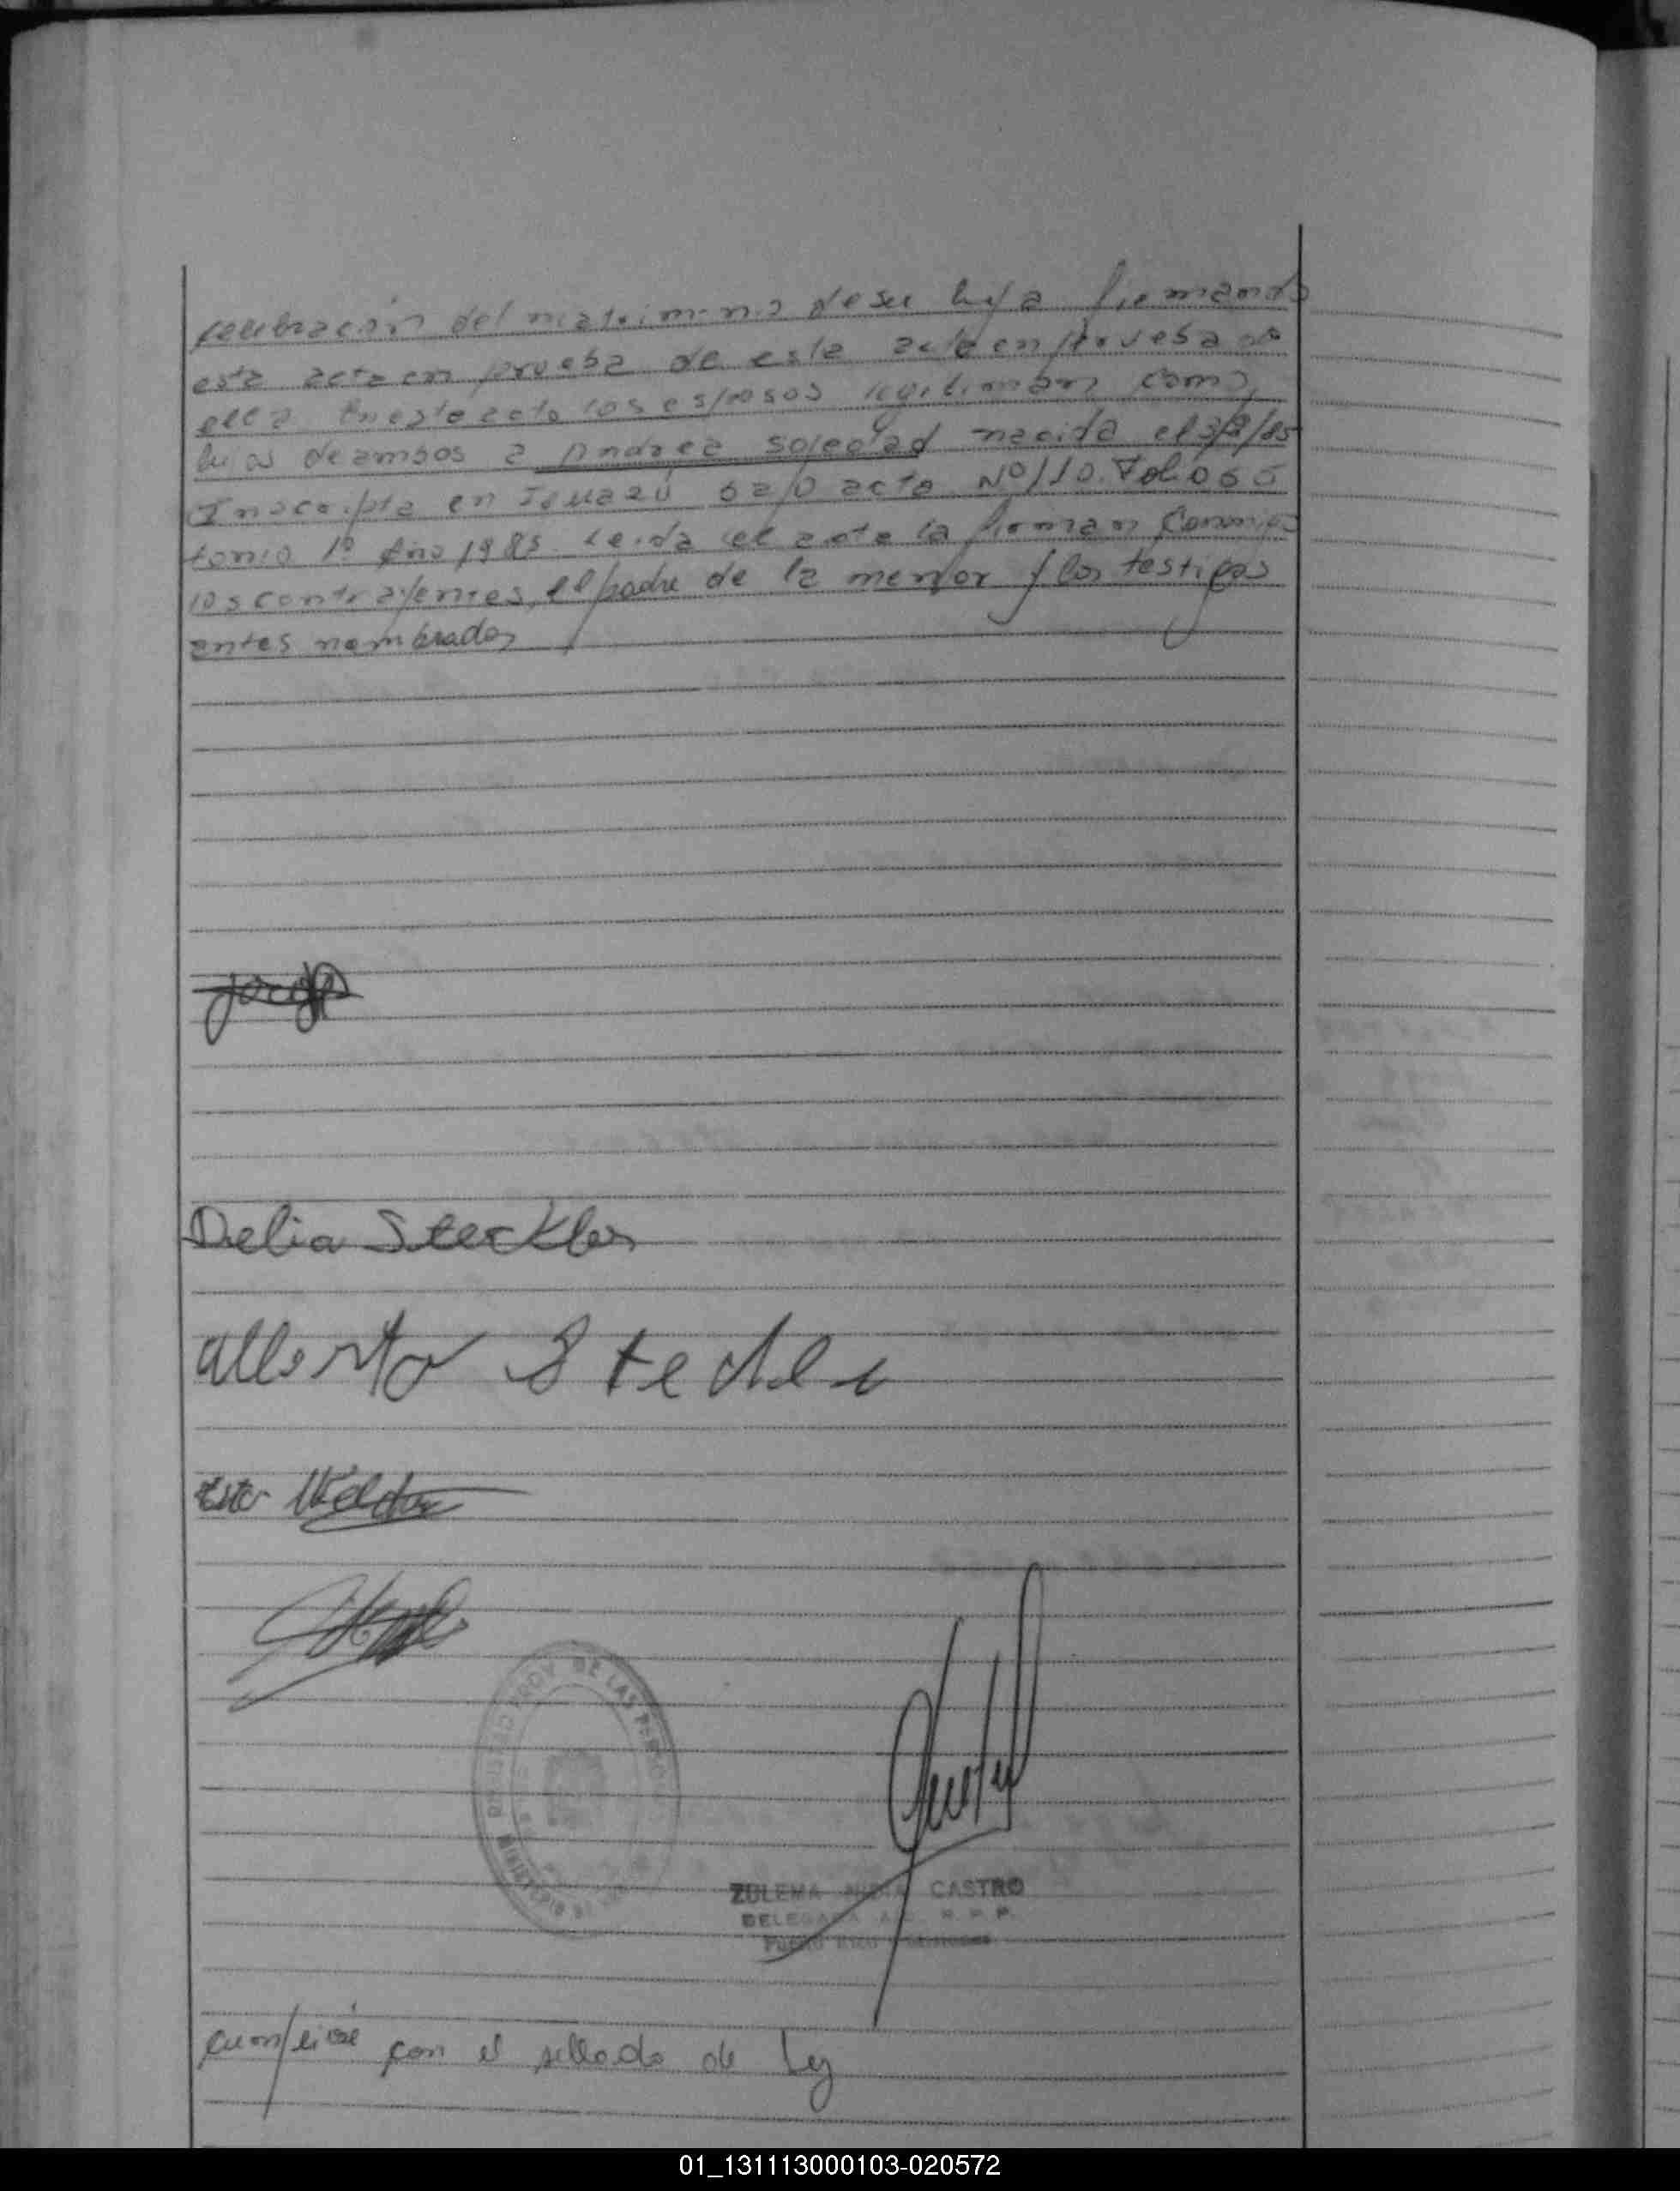 celebración del matrimonio de su hija firmando
esta acta en prueba de esta acto en prueba de
ella. En este acto los esposos legitiman como
hijos de ambos a Andrea Soledad nacida el 3/2/85
Inscripta en Iguazú bajo acta Nº 110. Folio 055
tomo 1º Año 1985. Leida el acta la firman conmigo
los contrayentes, el padre de la menor y los testigos
antes nombrados
Delia Steckler
Alberto Steckler
Ester
DE LAS PERSONAS
MINISTERIO DE
ZULEMA CASTRO
DELEGADA R. P. P.
Puerto Rico Misiones
cumplióse con el sellado de Ley
01_131113000103-020572